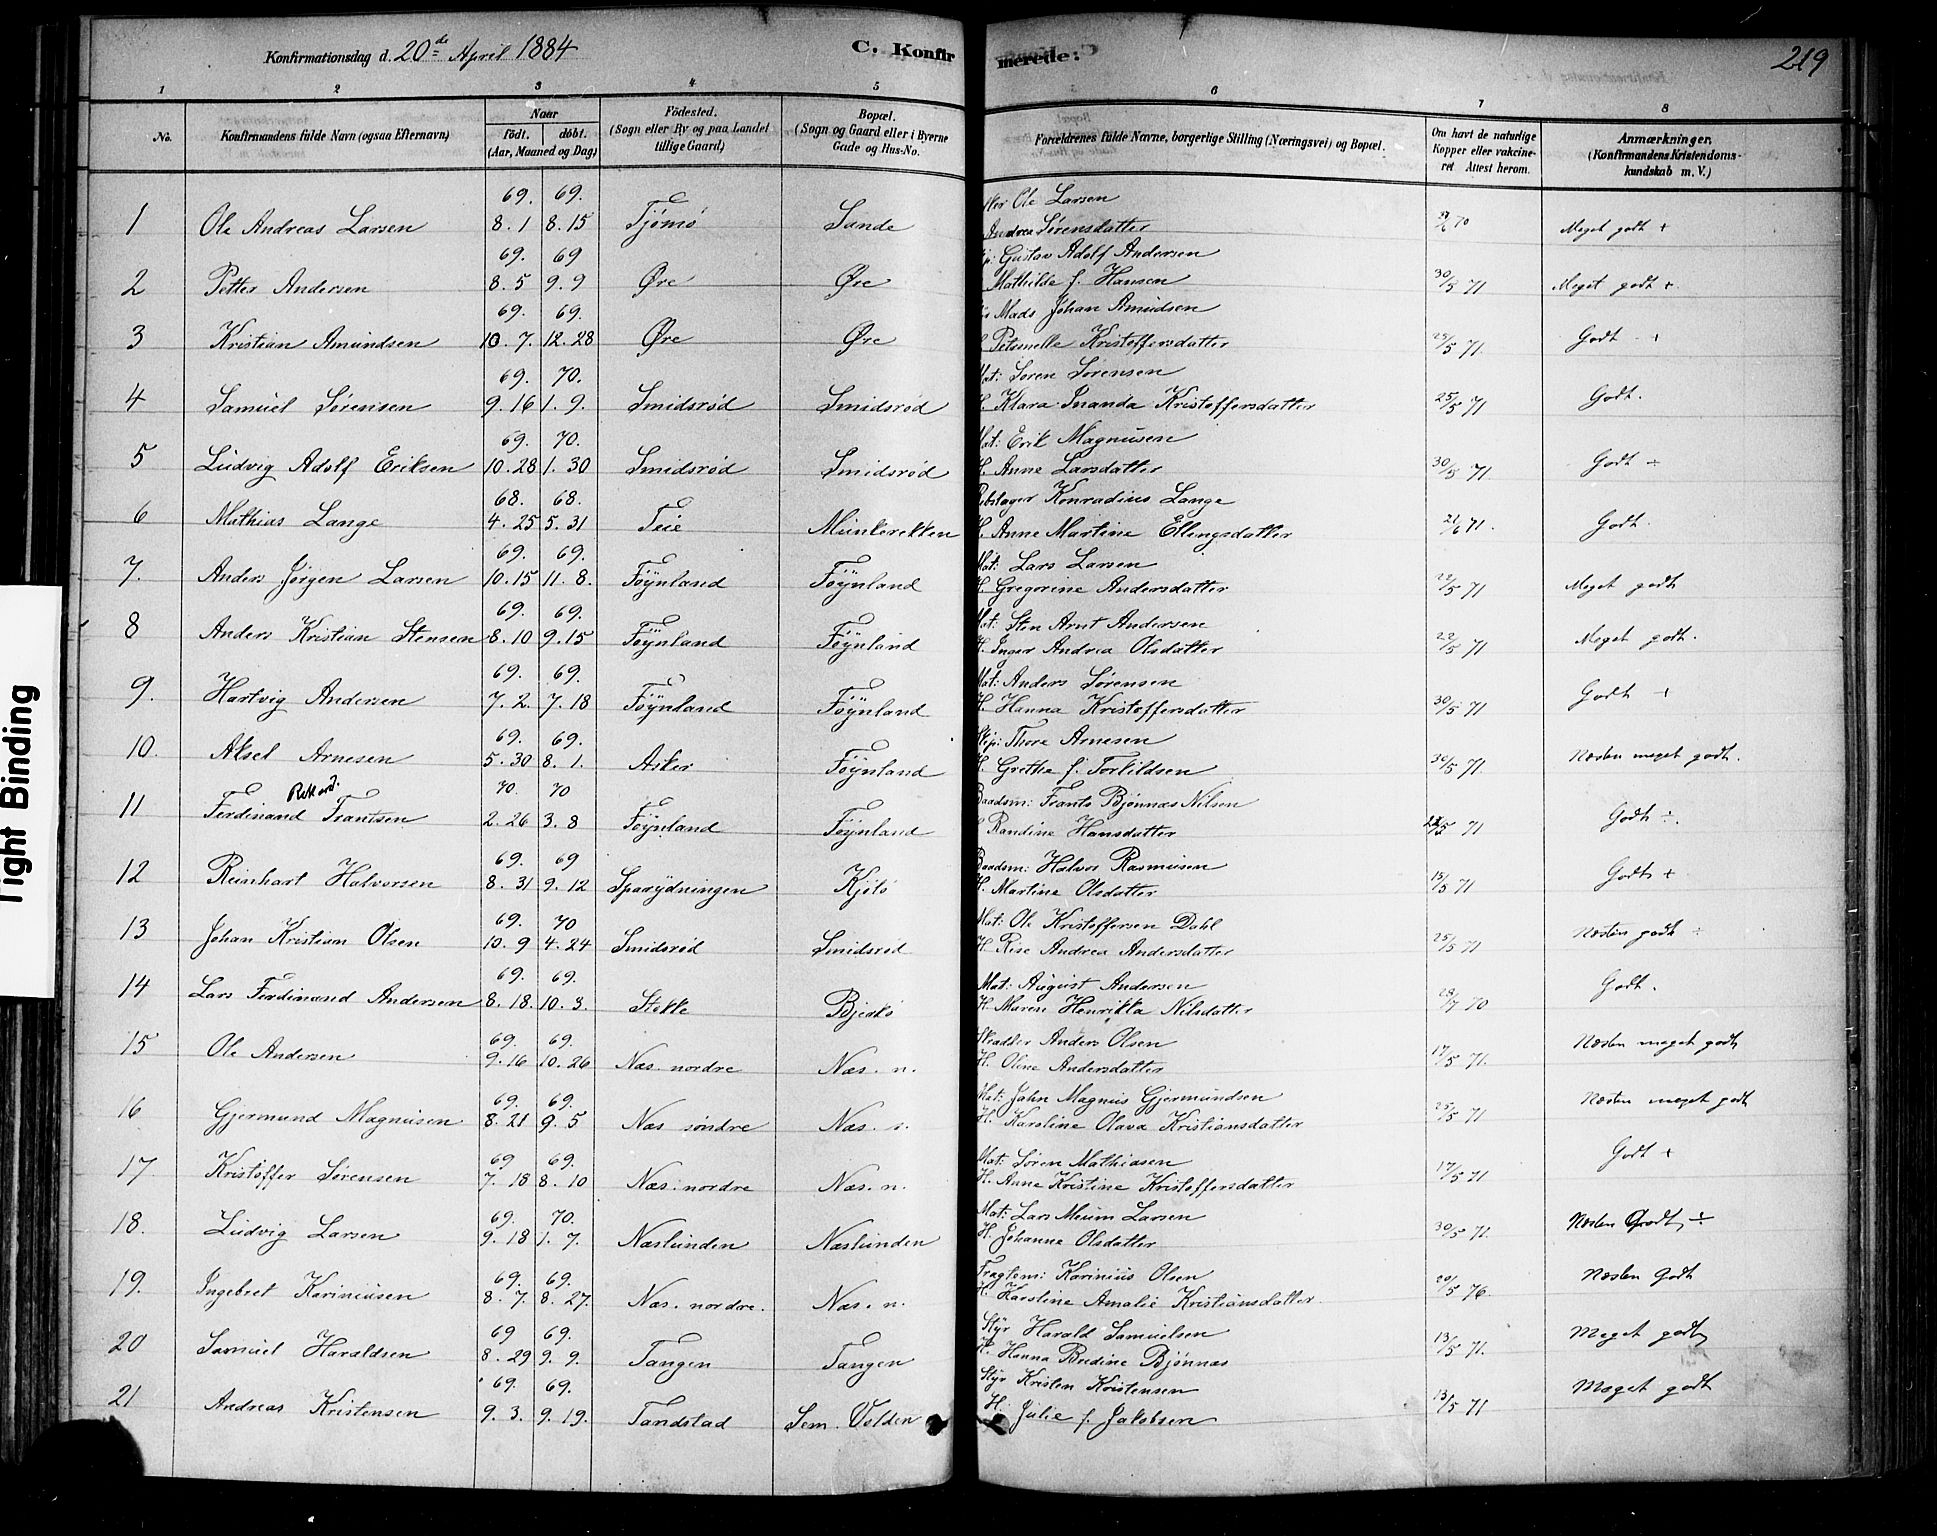 Konfirmationsdag d. 20de April 1884 C. Konfirmerede: 219
1 2 3 4 5 6 7 8
No. Konfirmandens fulde Navn (ogsaa Efternavn) Naar født. døbt. (Aar, Maaned og Dag) Fødested. (Sogn eller By og paa Landet tillige Gaard) Bopæl. (Sogn og Gaard eller i Byerne Gade og Hus-No. Forældrenes fulde Navne, borgerlige Stilling (Næringsvei) og Bopæl. Om havt de naturlige Kopper eller vakcineret Attest herom. Anmærkninger. (Konfirmandens Kristendomskundskab m. V.)
69. 69. Ole Larsen
1 Ole Andreas Larsen 8. 1 8. 15 Tjømø Sande Andrea Sørensdatter 70 Meget godt +
69. 69 Gustav Adolf Andersen
2 Petter Andersen 8. 5 9. 9 Øre Øre Mathilde f. Hansen 30/5 71 Meget godt +
69. 69. Mads Johan Amudsen
3 Kristian Amundsen 10. 7. 12. 28 Øre Øre Petronelle Kristoffersdatter 25/5 71. Godt +
69. 70. Mat: Søren Sørensen
4 Samuel Sørensen 9. 16 1. 9. Smidsrød Smidsrød H. Klara Inanda Kristoffersdatter 25/5 71 Godt.
69. 70. Mat: Erik Magnusen
5 Ludvig Adolf Eriksen 10. 28 1. 30 Smidsrød Smidsrød H. Anne Larsdatter 30/5 71. Godt ÷
68. 68. Rebslager Konradius Lange
6 Mathias Lange 4. 25 5. 31 Teie Munkerekken H. Anne Martine Ellingsdatter 21/6 71. Godt.
69. 69. Mat: Lars Larsen
7. Anders Jørgen Larsen 10. 15 11. 8. Føynland Føynland H. Gregorine Andersdatter 22/5 71 Meget godt
69. 69. Mat: Sten Arnt Andersen
8 Anders Kristian Stensen 8. 10 9. 15 Føynland Føynland H. Inger Andrea Olsdatter 22/5 71 Meget godt.
69. 69. Mat: Anders Sørensen
9. Hartvig Andersen 7. 2. 7. 18 Føynland Føynland H. Hanna Kristoffersdatter 30/5 71 Godt +
69. 69. Skip: Thore Arnesen
10. Aksel Arnesen 5. 30 8. 1. Asker Føynland H. Grethe f. Torkildsen 30/5 71. Næsten meget godt.
70. 70 Baadsm: Frants Bjønnæs Nilsen
11 Ferdinand Rikard. Frantsen 2. 26 3. 8 Føynland Føynland H. Randine Hansdatter 22/5 71 Godt ÷.
69. 69 Baadsm: Halvor Rasmusen
12 Reinhart Halvorsen 8. 31 9. 12 Kjøtø H. Martine Olsdatter 15/5 71 Godt +
69. 70 Mat: Ole Kristoffersen Dahl
13 Johan Kristian Olsen 10. 9 4. 24 Smidsrød Smidsrød H. Rise Andrea Andersdatter 25/5 71 Næsten godt ÷
69. 69. Mat: August Andersen
14 Lars Ferdinand Andersen 8. 18. 10. 3. Stokke Bjerkø H. Maren Henrikka Nilsdatter 28/7 70 Godt.
69. 69. Skrædder Anders Olsen
15 Ole Andersen 9. 16 10. 26 Næs. nordre Næs. n. H. Oline Andersdatter 17/5 71. Næsten meget godt
69. 69. Mat: John Magnus Gjermundsen
16 Gjermund Magnusen 8. 21 9. 5 Næs søndre Næs. s. H. Karoline Olava Kristiansdatter 25/5 71 Næsten meget godt
69 69. Mat: Søren Mathiasen
17 Kristoffer Sørensen 7. 18 8. 10 Næs. nordre Næs. n. H. Anne Kristine Kristoffersdatter 17/5 71 Godt +
69. 70. Mat: Lars Larsen
18. Ludvig Larsen 9. 18 1. 7. Næslunden Næslunden H. Johanne Olsdatter 30/5 71. Næsten Godt ÷
69. 69. Fragtem: Karinius Olsen
19. Ingebret Kariniusen 8. 7. 8. 27. Næs. nordre. Næs. n. H. Karoline Amalie Kristiansdatter. 20/5 76. Næsten Godt
69 69. Styr Harald Samuelsen
20 Samuel Haraldsen 8. 29 9. 9. Tangen Tangen H. Hanna Bredine Bjønnæs 13/5 71. Meget godt
69. 69. Styr Kristen Kristensen
21 Andreas Kristensen 9. 3. 9. 19. Tandstad Sem. Volden H. Julie f. Jakobsen 13/5 71 Meget godt
Tight Binding